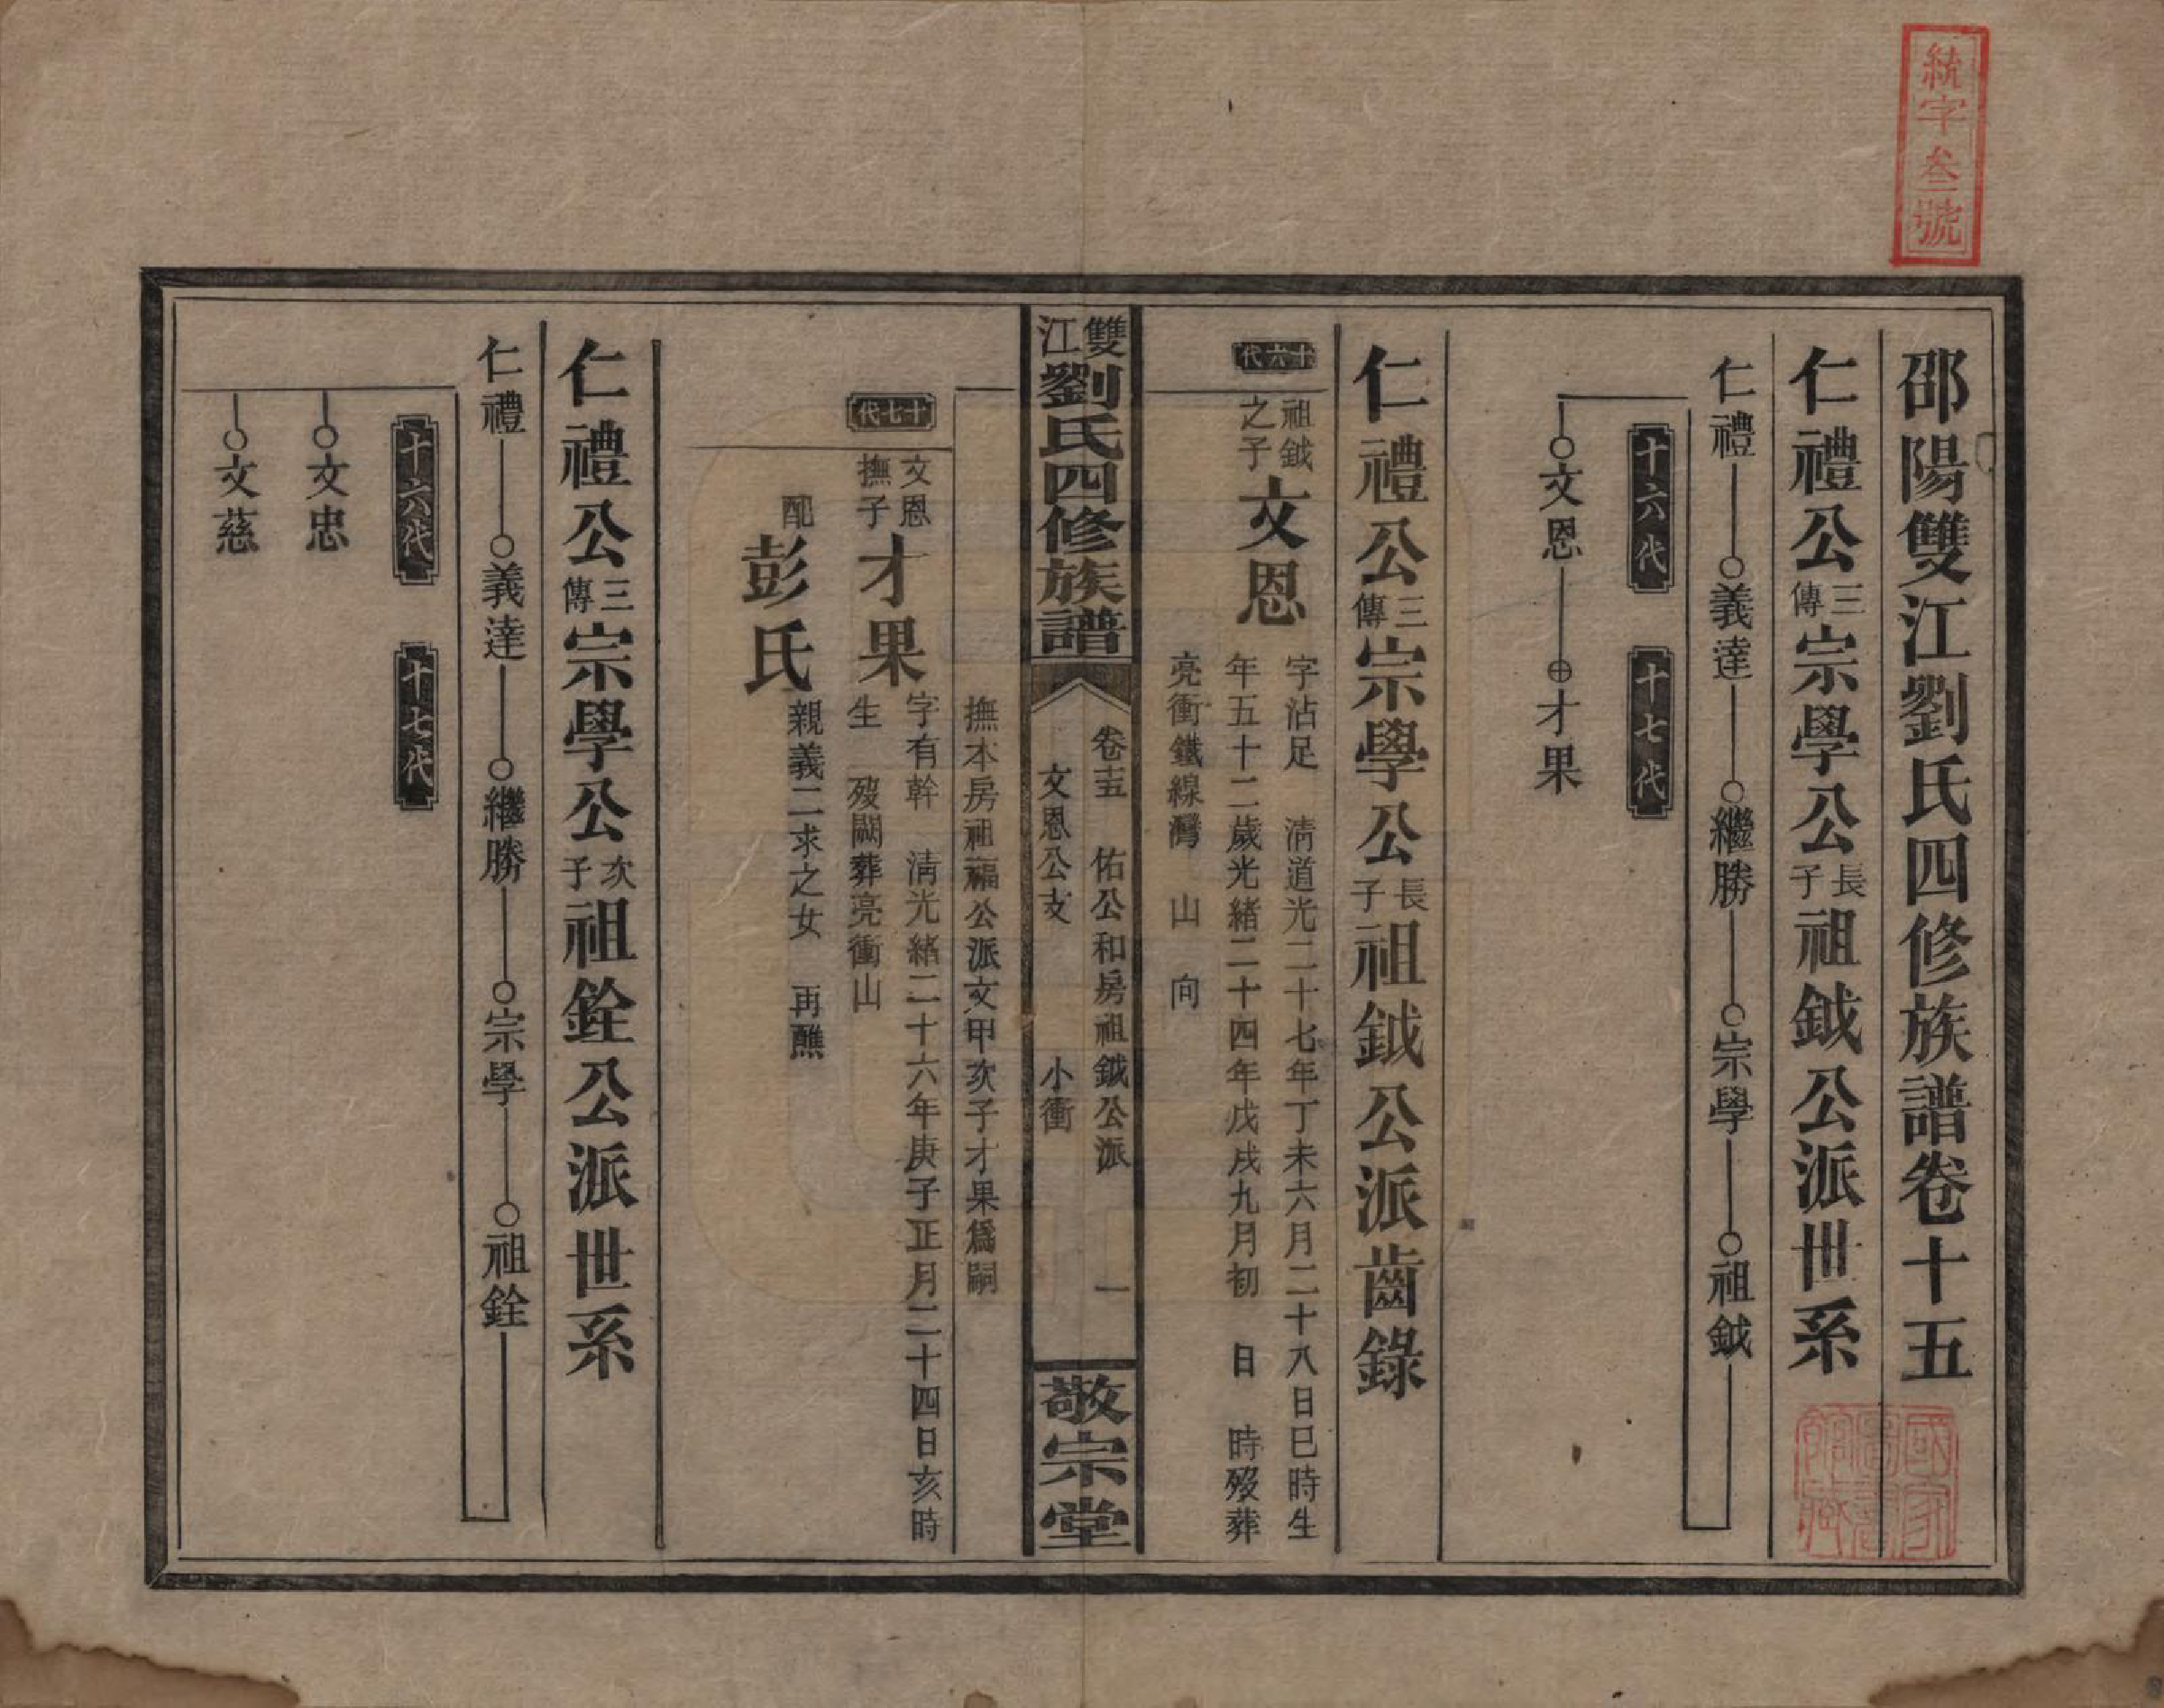 統字叁號
邵陽雙江劉氏四修族譜卷十五
國家圖書館藏
仁禮公三傳宗學公長子祖鉞公派世系
仁禮 義達 繼勝 宗學 祖鉞
十六代 十七代
文恩 才果
仁禮公三傳宗學公長子祖鉞公派齒錄
十六代
祖鉞之子文恩
字沾足 清道光二十七年丁未六月二十八日巳時生
年五十二歲光緒二十四年戊戌九月初 日 時歿葬
亮衝鐵線灣 山 向
雙江劉氏四修族譜
卷十五 佑公和房祖鉞公派 一
文恩公支 小衝
敬宗堂
撫本房祖福公派文甲次子才果爲嗣
十七代
文恩撫子才果
字有幹 清光緒二十六年庚子正月二十四日亥時
生 歿闕葬亮衝山
配彭氏
親義二求之女 再醮
仁禮公三傳宗學公次子祖銓公派世系
仁禮 義達 繼勝 宗學 祖銓
十六代 十七代
文忠
文慈